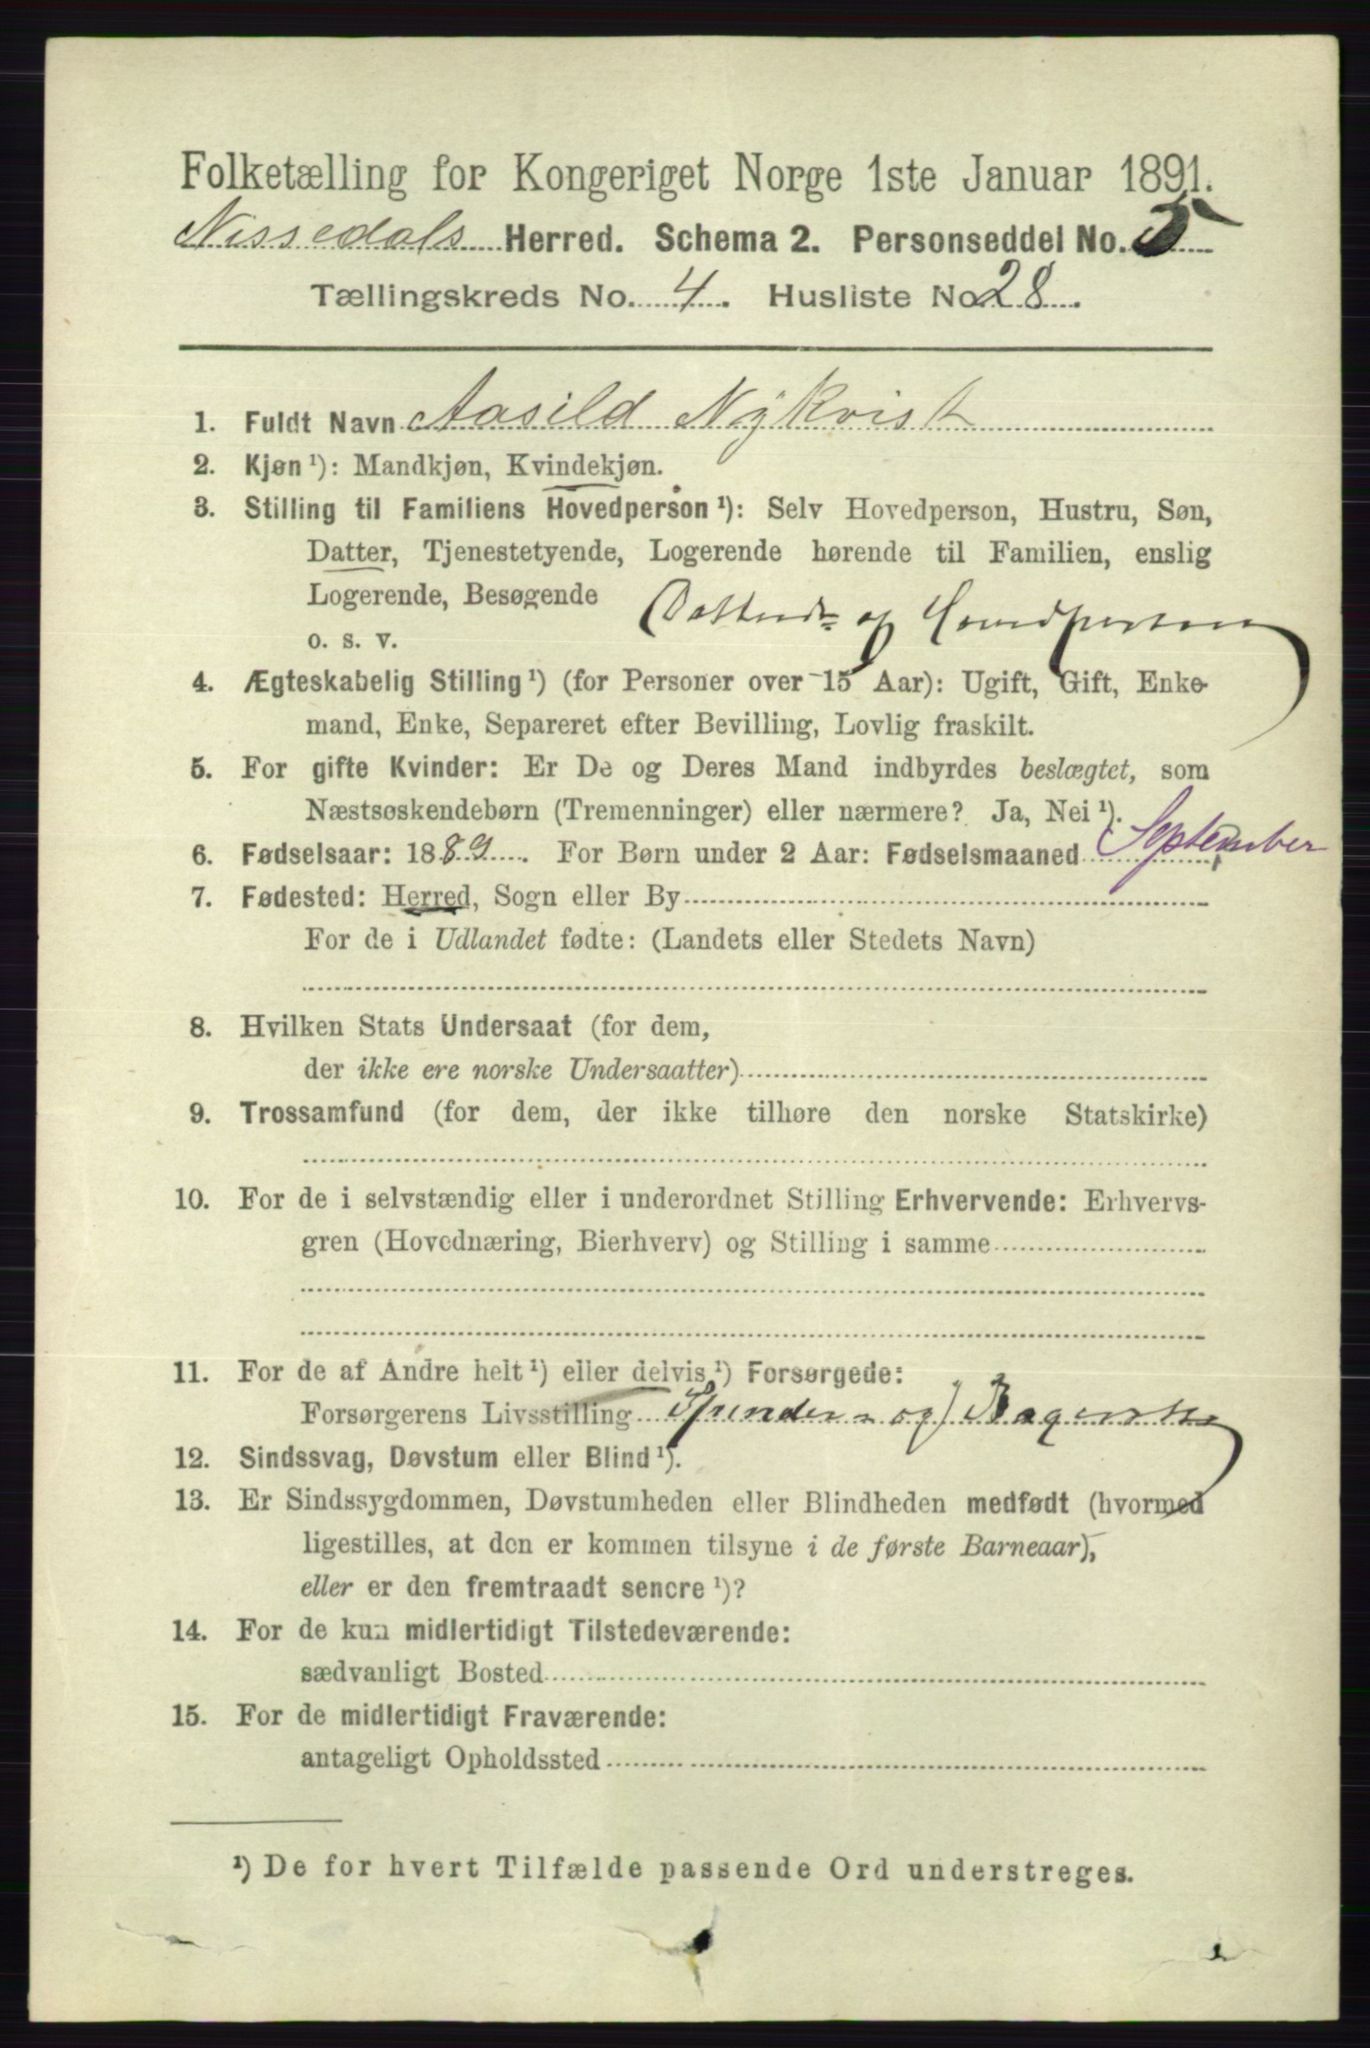 Folketælling for Kongeriget Norge 1ste Januar 1891.
Nissedals Herred. Schema 2. Personseddel No. 5
Tællingskreds No. 4. Husliste No 28.
1. Fuldt Navn Aasild Nÿkvist
2. Kjøn ¹): Mandkjøn, Kvindekjøn.
3. Stilling til Familiens Hovedperson ¹): Selv Hovedperson, Hustru, Søn,
Datter, Tjenestetyende, Logerende hørende til Familien, enslig
Logerende, Besøgende
o. s. v.
af Hovedpersonen
4. Ægteskabelig Stilling ¹) (for Personer over 15 Aar): Ugift, Gift, Enke-
mand, Enke, Separeret efter Bevilling, Lovlig fraskilt.
5. For gifte Kvinder: Er De og Deres Mand indbyrdes beslægtet, som
Næstsøskendebørn (Tremenninger) eller nærmere? Ja, Nei ¹).
6. Fødselsaar: 1889. For Børn under 2 Aar: Fødselsmaaned September
7. Fødested: Herred, Sogn eller By
For de i Udlandet fødte: (Landets eller Stedets Navn)
8. Hvilken Stats Undersaat (for dem,
der ikke ere norske Undersaatter)
9. Trossamfund (for dem, der ikke tilhøre den norske Statskirke)
10. For de i selvstændig eller i underordnet Stilling Erhvervende: Erhvervs-
gren (Hovednæring, Bierhverv) og Stilling i samme
11. For de af Andre helt ¹) eller delvis ¹) Forsørgede:
Forsørgerens Livsstilling Spinder- og
12. Sindssvag, Døvstum eller Blind ¹).
13. Er Sindssygdommen, Døvstumheden eller Blindheden medfødt (hvormed
ligestilles, at den er kommen tilsyne i de første Barneaar),
eller er den fremtraadt senere ¹)?
14. For de kun midlertidigt Tilstedeværende:
sædvanligt Bosted
15. For de midlertidigt Fraværende:
antageligt Opholdssted
¹) De for hvert Tilfælde passende Ord understreges.